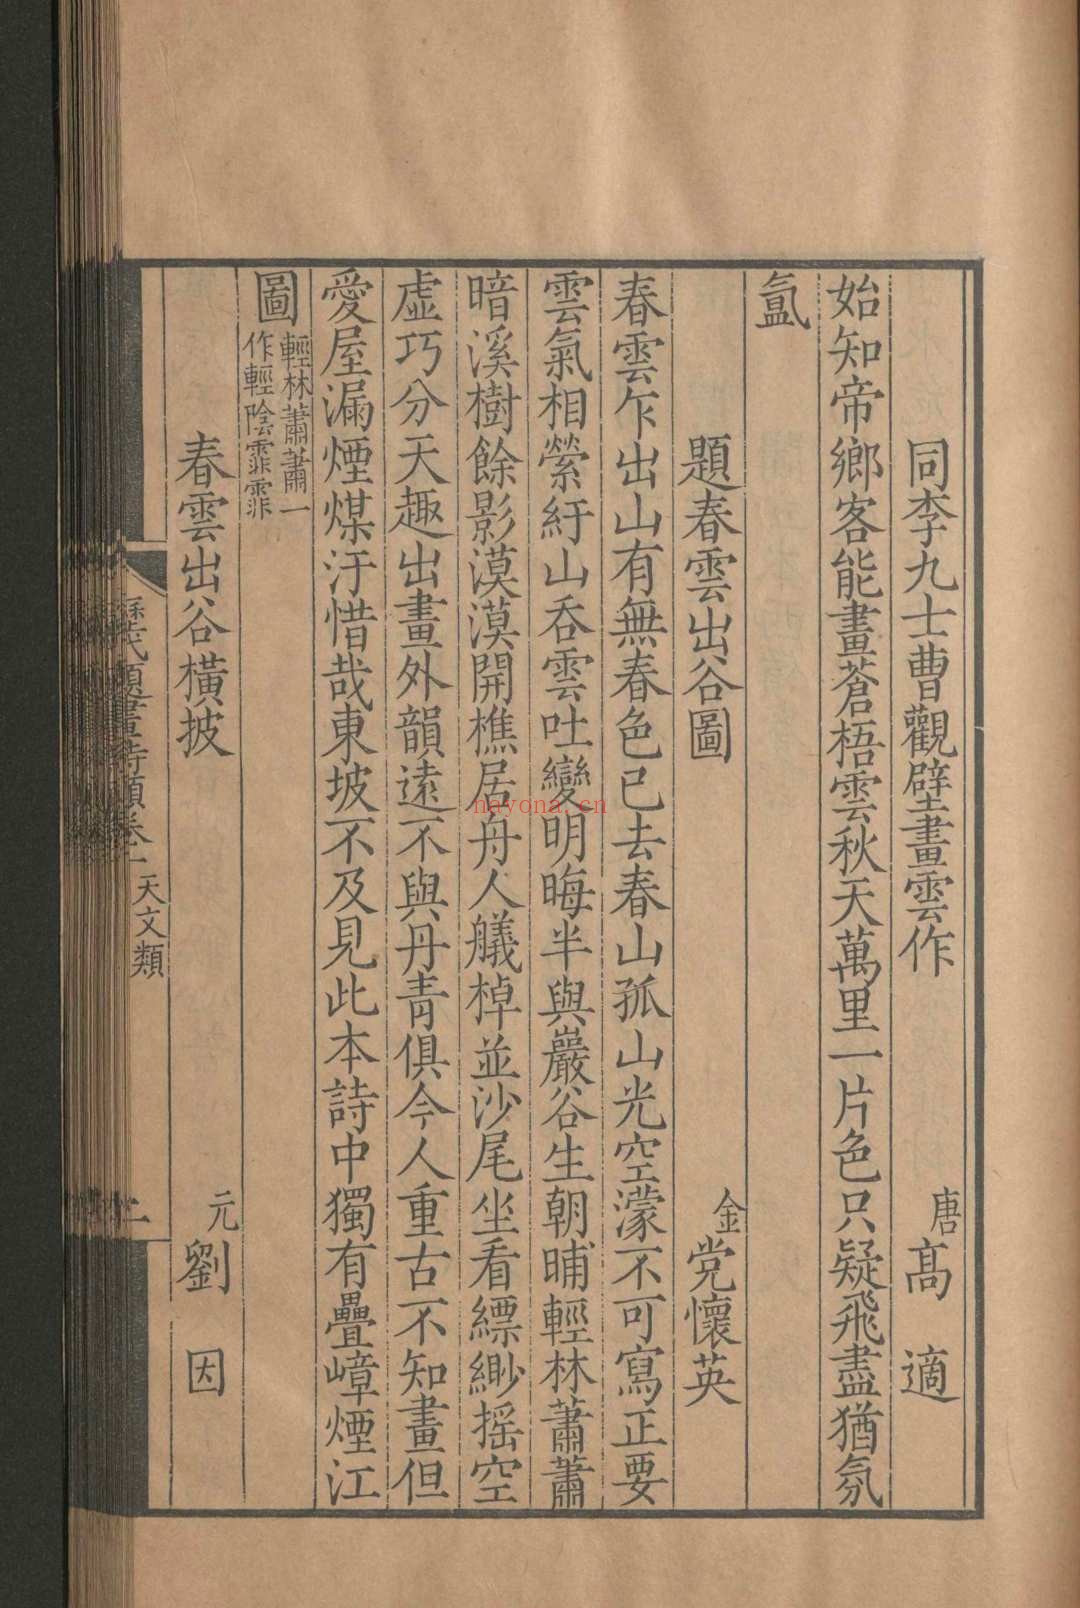 同李九士曹觀壁畫雲作　唐高　適
始知帝鄉客能畫蒼梧雲秋天萬里一片色只疑飛盡猶氛
氲
題春雲出谷圖　金党懷英
春雲乍出山有無春色已去春山孤山光空濛不可寫正要
雲氣相縈紆山吞雲吐變明晦半與巖谷生朝晡輕林蕭蕭
暗溪樹餘影漠漠開樵居舟人艤棹並沙尾坐看縹緲搖空
虛巧分天趣出畫外韻遠不與丹青俱今人重古不知畫但
愛屋漏煙煤汙惜哉東坡不及見此本詩中獨有疊嶂煙江
圖輕林蕭蕭一
作輕陰霏霏
春雲出谷橫披　元劉　因
歷代題畫詩類卷一
天文類
nayona.cn